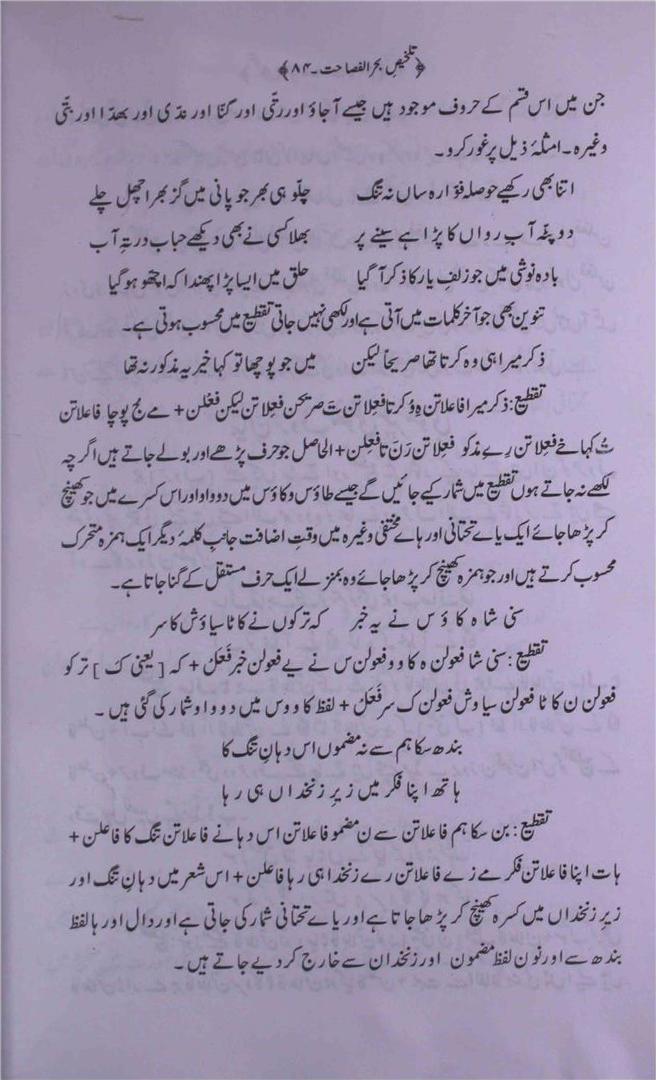 ﴿تلخیصِ بحر الفصاحت۔۸۴﴾
جن میں اس قسم کے حروف موجود ہیں جیسے آ جاؤ اور رتّی اور گنّا اور عدّی اور بھدّا اور بتّی
وغیرہ۔ امثلۂ ذیل پر غور کرو۔
اتنا بھی رکھیے حوصلہ فوّارہ ساں نہ تنگ چلّو ہی بھر جو پانی میں گز بھر اچھل چلے
دوپٹّہ آبِ رواں کا پڑا ہے سینے پر بھلا کسی نے بھی دیکھے حباب در تہِ آب
بادہ نوشی میں جو زلفِ یار کا ذکر آ گیا حلق میں ایسا پڑا پھندا کہ اچھو ہو گیا
تنوین بھی جو آخر کلمات میں آتی ہے اور لکھی نہیں جاتی تقطیع میں محسوب ہوتی ہے۔
ذکر میرا ہی وہ کرتا تھا صریحاً لیکن میں جو پوچھا تو کہا خیر یہ مذکور نہ تھا
تقطیع: ذکر میرا فاعلاتن ہِ وُ کرتا فعِلاتن تَ صریحن فعِلاتن لیکن فعْلن + مے جُ پوچا فاعلاتن
تُ کہا خے فعِلاتن رِے مذکو فعِلاتن رَنَ تا فعِلن + الحاصل جو حرف پڑھے اور بولے جاتے ہیں اگرچہ
لکھے نہ جاتے ہوں تقطیع میں شمار کیے جائیں گے جیسے طاؤس و کاؤس میں دو واو اور اس کسرے میں جو کھینچ
کر پڑھا جائے ایک یاے تحتانی اور ہاے مختفی وغیرہ میں وقتِ اضافت جانبِ کلمۂ دیگر ایک ہمزہ متحرک
محسوب کرتے ہیں اور جو ہمزہ کھینچ کر پڑھا جائے وہ بمنزلے ایک حرف مستقل کے گنا جاتا ہے۔
سنی شاہ کاؤس نے یہ خبر کہ ترکوں نے کاٹا سیاؤش کا سر
تقطیع: سنی شا فعولن ہ کا وو فعولن س نے یے فعولن خبر فَعَل + کہ [یعنی ک] ترکو
فعولن ن کا ٹا فعولن سیاوش فعولن ک سر فَعَل + لفظ کاووس میں دو واو شمار کی گئی ہیں۔
بندھ سکا ہم سے نہ مضموں اس دہانِ تنگ کا
ہاتھ اپنا فکر میں زیرِ زنخداں ہی رہا
تقطیع: بن سکا ہم فاعلاتن سے ن مضمو فاعلاتن اس دہانے فاعلاتن تنگ کا فاعلن +
ہات اپنا فاعلاتن فکر مے زے فاعلاتن رے زنخدا ہی رہا فاعلن + اس شعر میں دہانِ تنگ اور
زیرِ زنخداں میں کسرہ کھینچ کر پڑھا جاتا ہے اور یاے تحتانی شمار کی جاتی ہے اور دال اور ہا لفظ
بندھ سے اور نون لفظ مضمون اور زنخدان سے خارج کر دیے جاتے ہیں۔